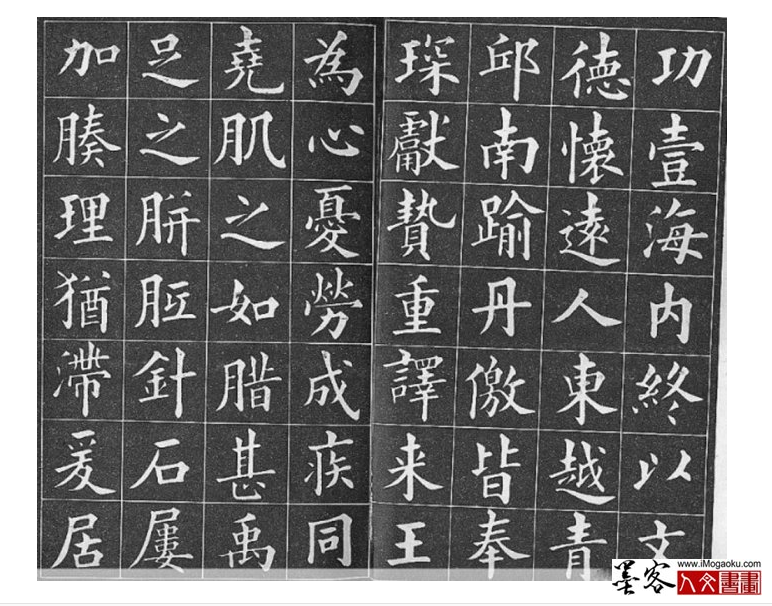 功壹海内終以文
德懷遠人東越青
邱南踰丹徼皆奉
琛獻贄重譯来王
為心憂勞成疾同
堯肌之如腊甚禹
足之胼胝針石屢
加腠理猶滯爰居
墨客
www.iMogaoku.com
人文書畫